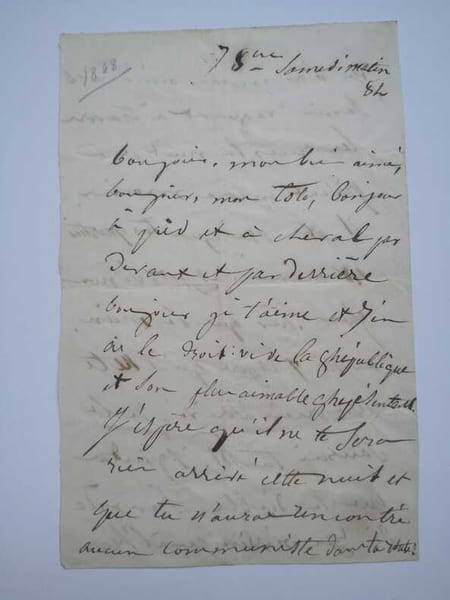 1848
7 8bre Samedi matin
8h
bonjour, mon bien aimé,
bonjour, mon Toto, bonjour
à pied et à cheval par
devant et par derrière
bonjour je t'aime et j'en
ai le droit: vive la Ghépublique
et son plus aimable
J'espère qu'il ne te sera
rien arrivé cette nuit et
que tu n'auras rencontré
aucun communiste dans ta route.